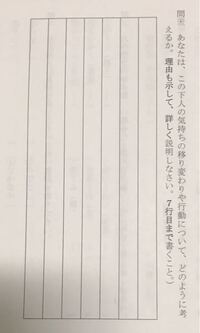 問㈥ あなたは、この下人の気持ちの移り変わりや行動について、どのように考
えるか。理由も示して、詳しく説明しなさい。７行目まで書くこと。）